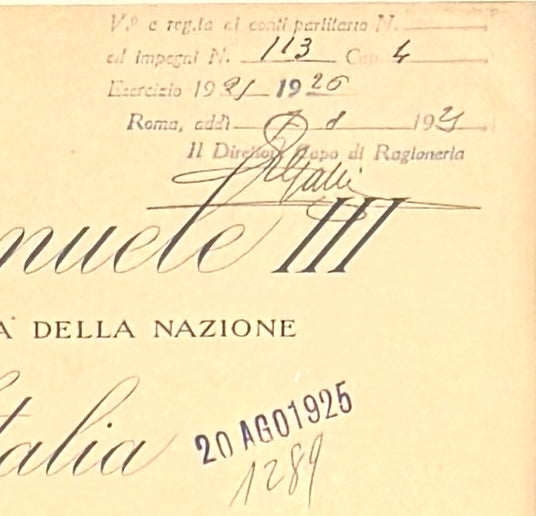 V.º e reg.to ai conti partitario N.
ed impegni N. 113 Cap. 4
Esercizio 1925 1926
Roma, addì 7 8 1925
Il Direttore Capo di Ragioneria
nuele III
A' DELLA NAZIONE
talia
20 AGO 1925
1289